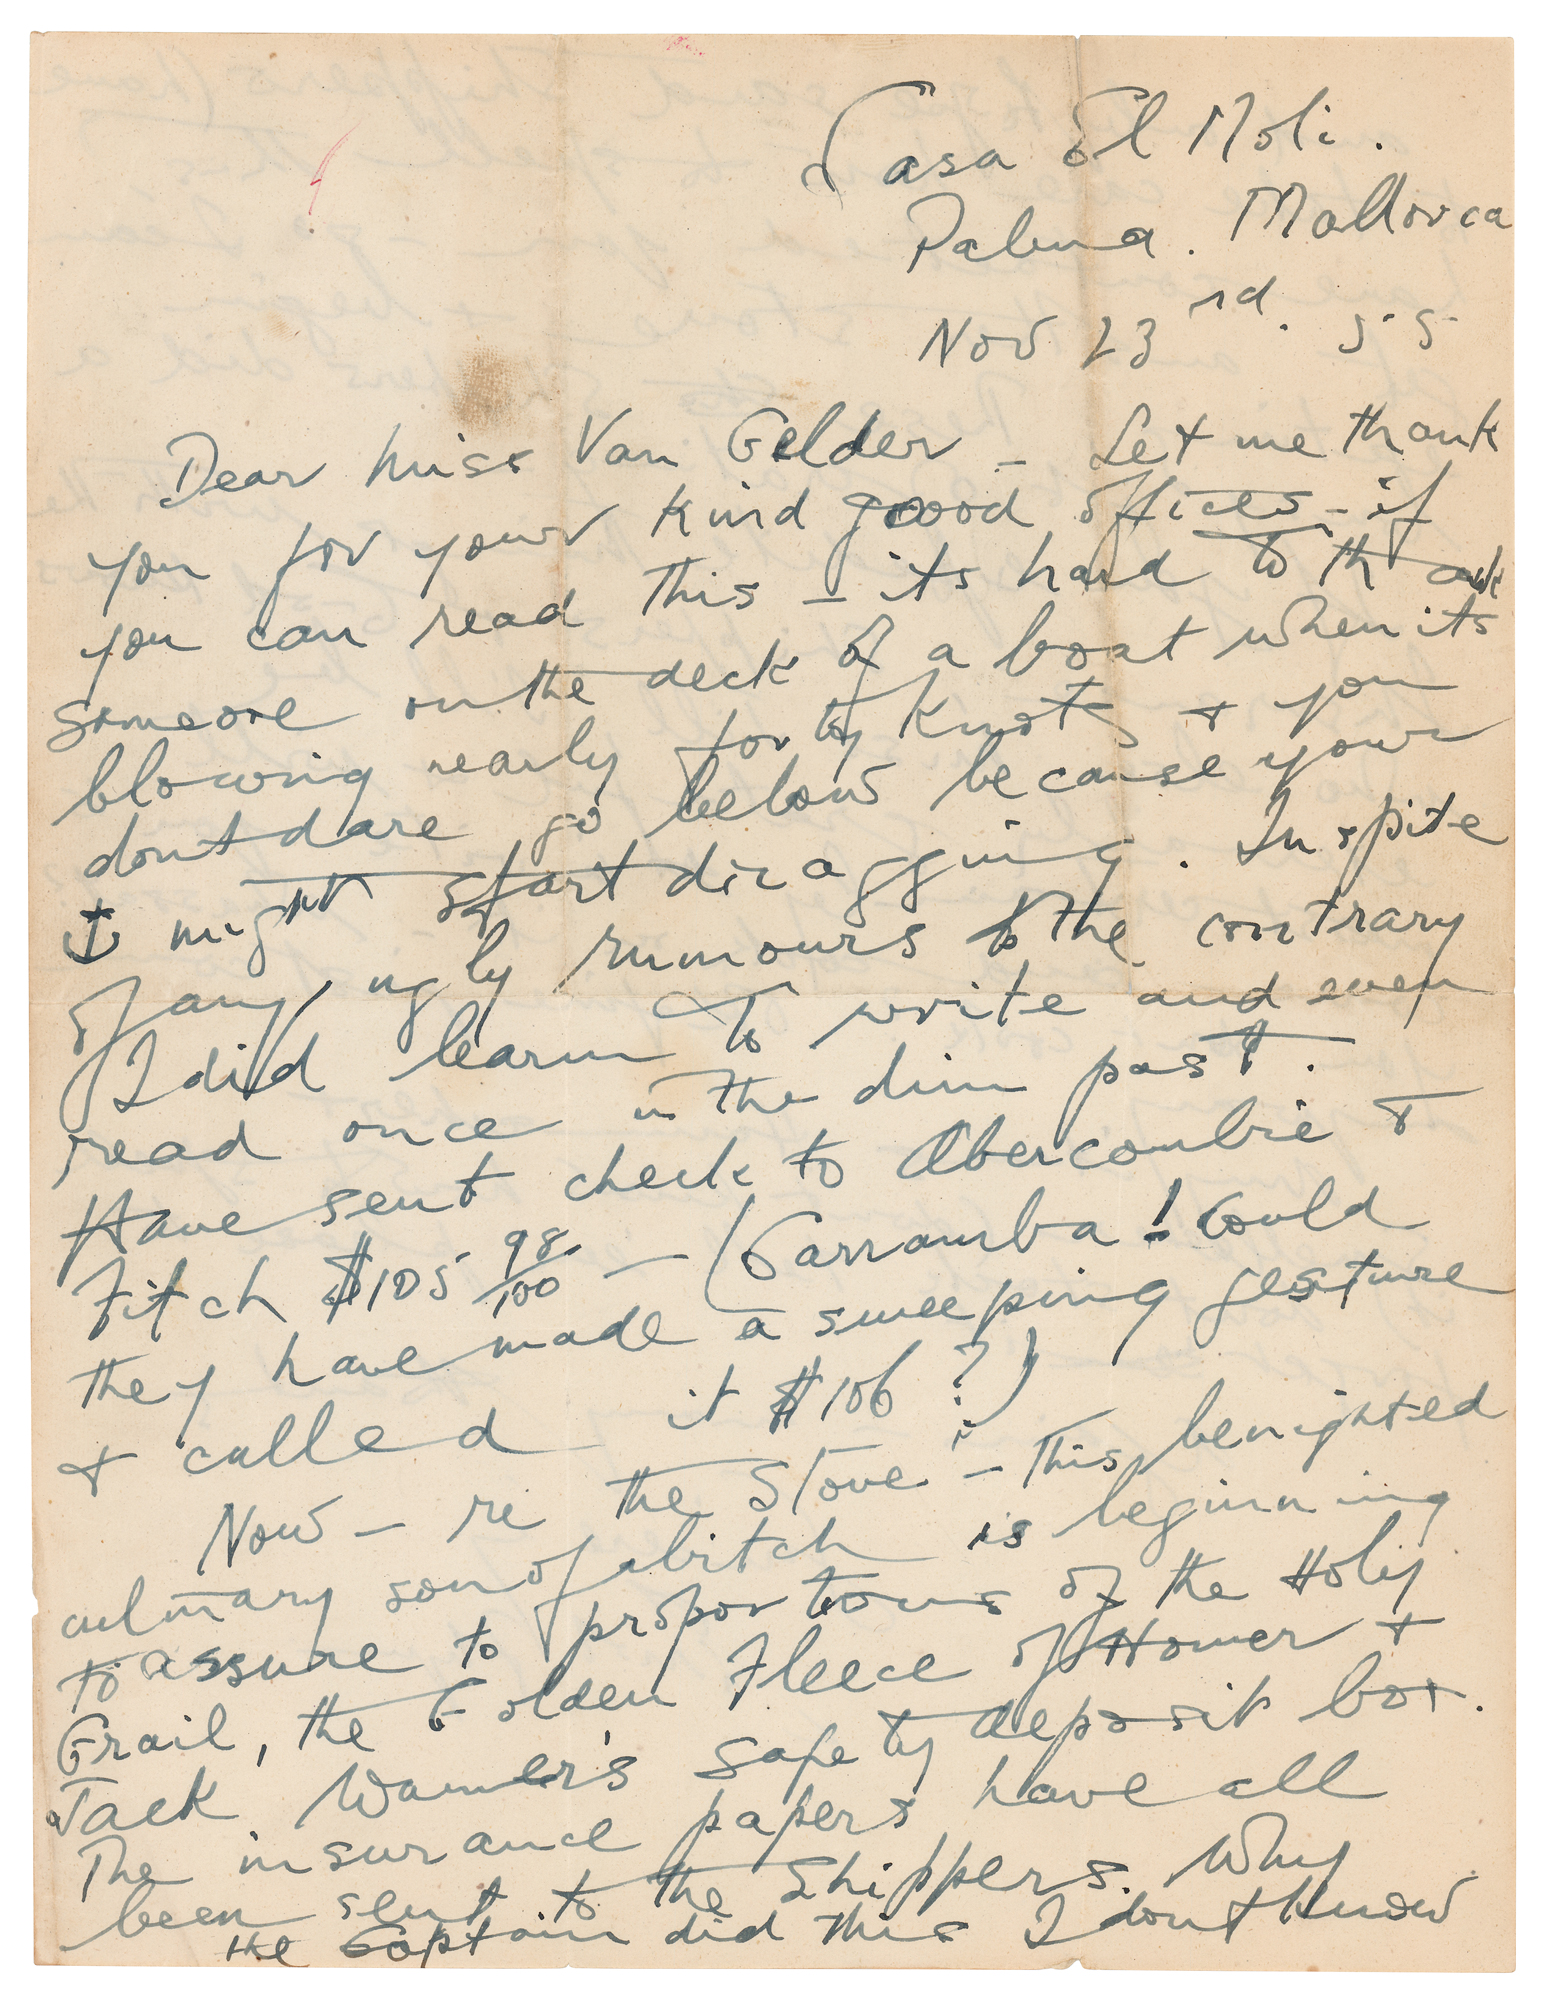 Casa El Moli.
Palma. Mallorca
Nov 23rd. 55
Dear Miss Van Gelder – Let me thank
you for your kind good offices – if
you can read this – its hard to thank
someone on the deck of a boat when its
blowing nearly forty knots & you
dont dare go below because your
⚓ might start dragging. In spite
of any ugly rumours to the contrary
I did learn to write and even
read once in the dim past.
Have sent check to Abercombie &
Fitch $105 98/100 – (Carramba! Could
they have made a sweeping gesture
& called it $106?)
Now – re the Stove – This benighted
culinary son of a bitch is beginning
to assure to proportions of the Holy
Grail, the Golden Fleece of Homer &
Jack Warner's safety deposit box.
The insurance papers have all
been sent to the Shippers. Why
the Captain did this I dont know